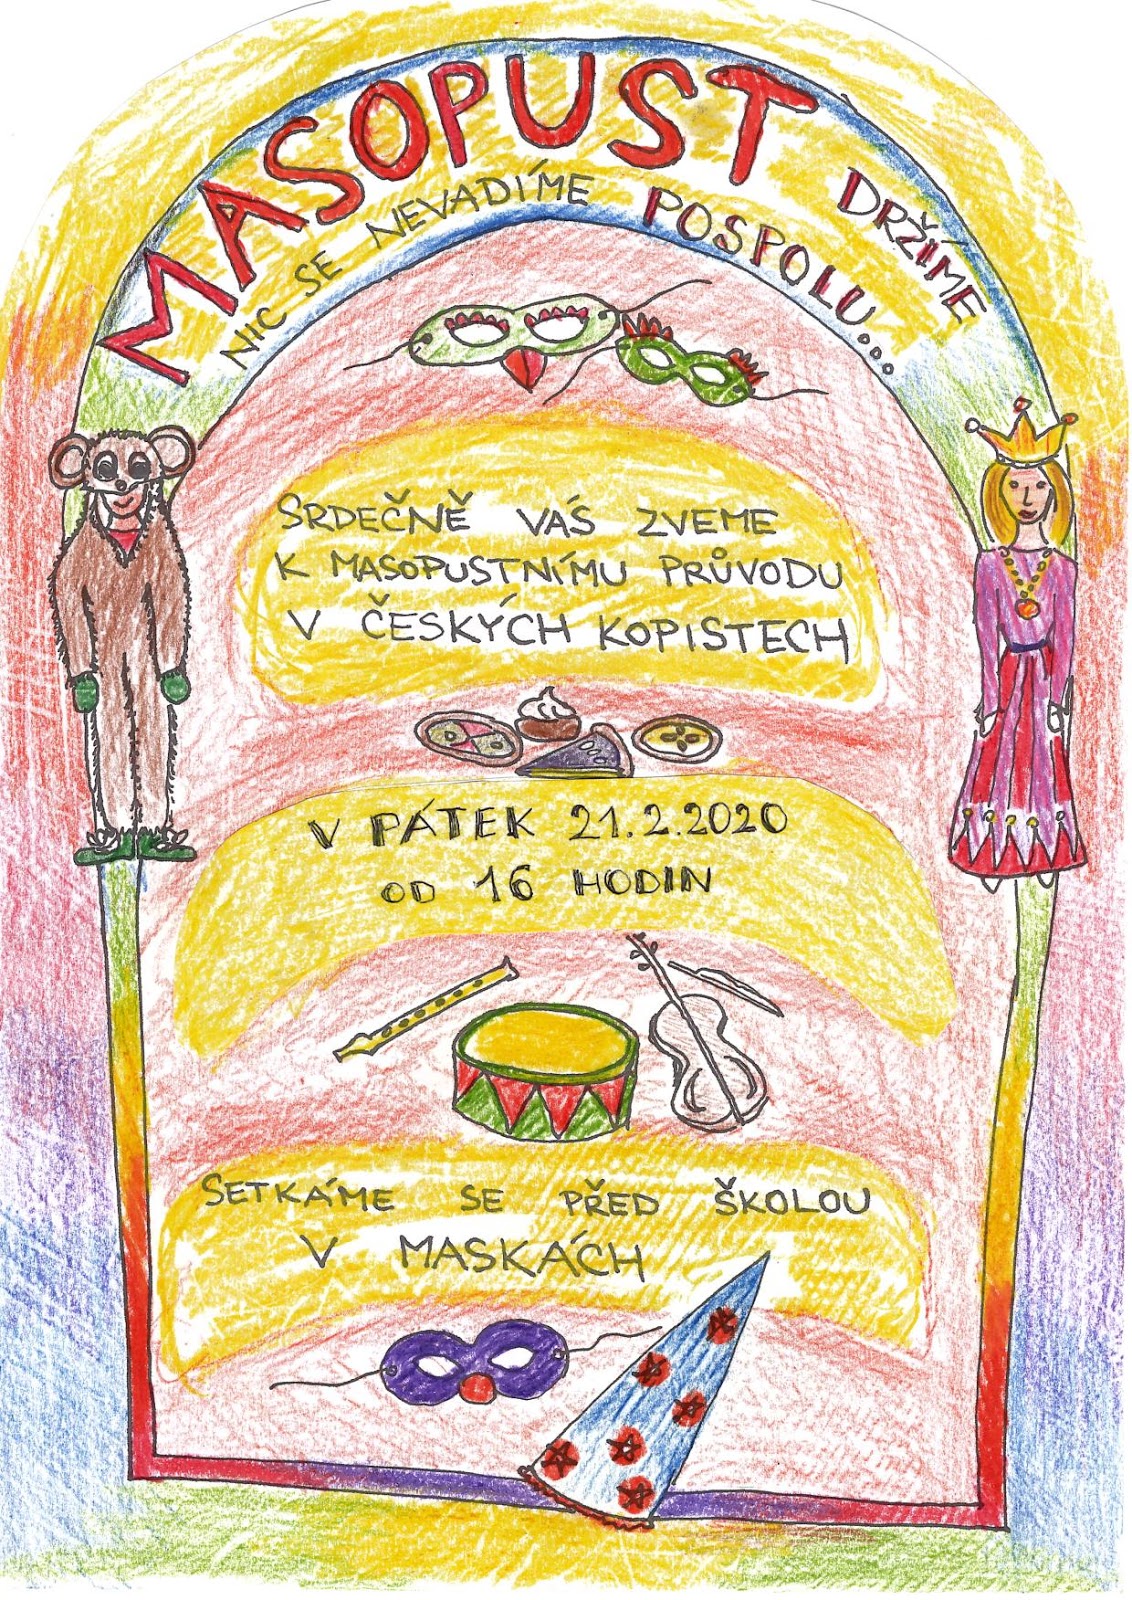 MASOPUST DRŽÍME
NIC SE NEVADÍME POSPOLU...
SRDEČNĚ VÁS ZVEME
K MASOPUSTNÍMU PRŮVODU
V ČESKÝCH KOPISTECH
V PÁTEK 21.2.2020
OD 16 HODIN
SETKÁME SE PŘED ŠKOLOU
V MASKÁCH